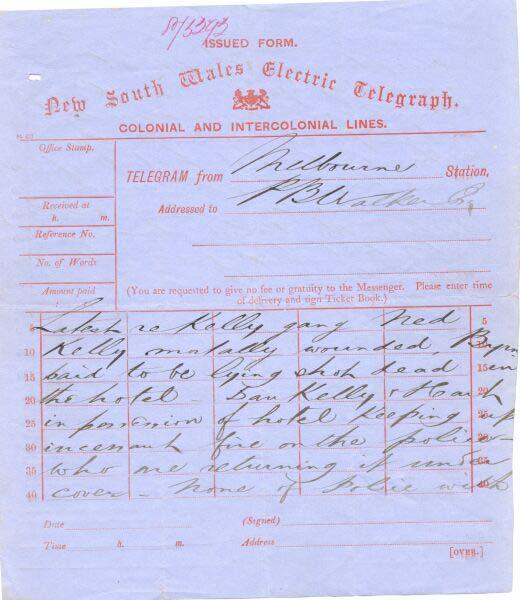 80/3393
ISSUED FORM.
New South Wales Electric Telegraph.
COLONIAL AND INTERCOLONIAL LINES.
Office Stamp.
TELEGRAM from Melbourne Station,
Addressed to P B Walker Esq
Received at
h. m.
Reference No.
No. of Words
Amount paid
:
(You are requested to give no fee or gratuity to the Messenger. Please enter time
of delivery and sign Ticket Book.)
5 Latest re Kelly gang Ned 5
10 Kelly mortally wounded, Byrne 10
15 said to be lying shot dead in 15
20 the hotel - Dan Kelly & Hart 20
25 in possession of hotel keeping up 25
30 incessant fire on the police 30
35 who are returning it under 35
40 cover - None of police with 40
Date
(Signed)
Time h. m.
Address
[OVER.]